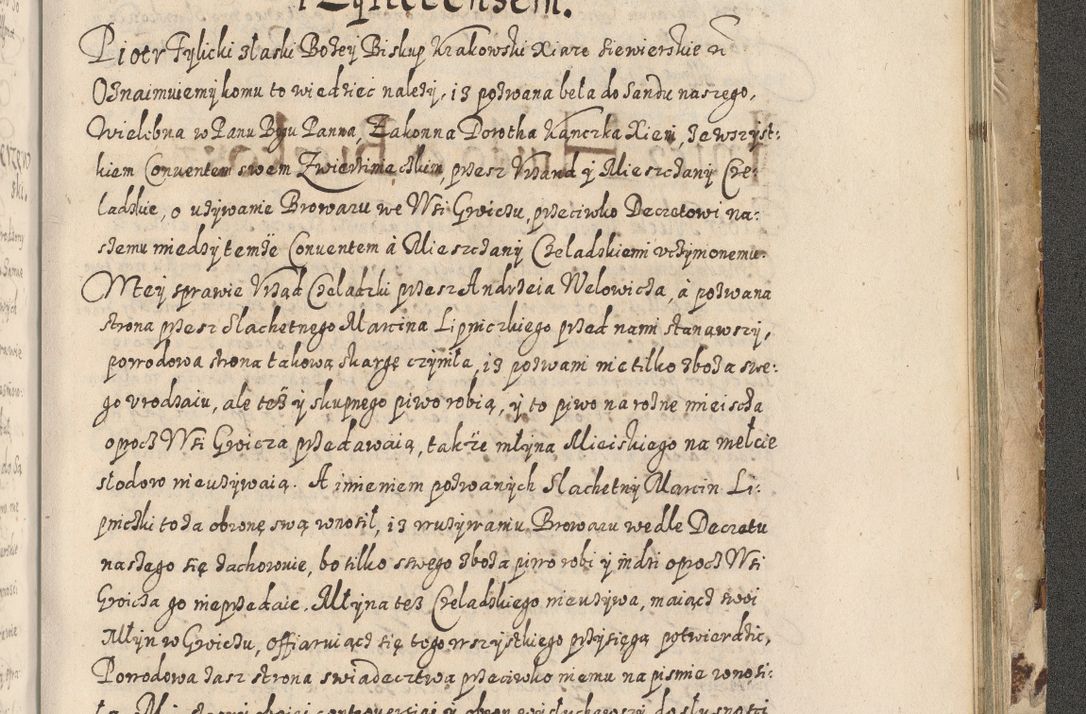 Piotr Tylicki z łaski Bożey Biskup Krakowski Xiąże Siewierskie etc
Oznaimuiemy komu to wiedziec należy, iz pozwana beła do Sandu naszego,
Wielebna w Panu Bogu Panna, Zakonna Dorotha Kanczka Xieni, ze wszyst:
kiem Conuentem swem Zwierzinieczkim, przesz Vrząnd y Mieszczany Cze:
ladzkie, o używanie Browaru we Wsi Groiczu, przeciwko Decretowi na:
szemu miedzy temże Conuentem à Mieszczany Czeladzkiemi vczynionemu.
W tey sprawie Vrząd Czeladzki przesz Andrzeia Welowicza, à pozwana
strona przesz Slachetnego Marcina Lipniczkiego przed nami stanąwszy,
powodowa strona takową skargę czyniła, iz pozwani nie tilko zboża swe:
go vrodzaiu, ale też y skupnego piwo robią, y to piwo na rożne mieiscza
oprocz Wsi Groicza przedawaią, także młyna Mieiskiego na mełcie
słodow nieużywaią. A imieniem pozwanych Slachetny Marcin Li:
pniczki to za obronę swą wnosił, iz w używaniu Browaru wedle Decretu
naszego się zachowuie, bo tilko z swego zboża piwo robi y indzi oprocz Wsi
Groicza go nieprzedaie. Młyna też Czeladzkiego nieużywa, maiącz swoi
Młyn w Groiczu, offiaruiącz się tego wszystkiego przysięgą potwierdzic,
Powodowa zasz strona swiadecztwa przeciwko niemu na pismie wnosi: